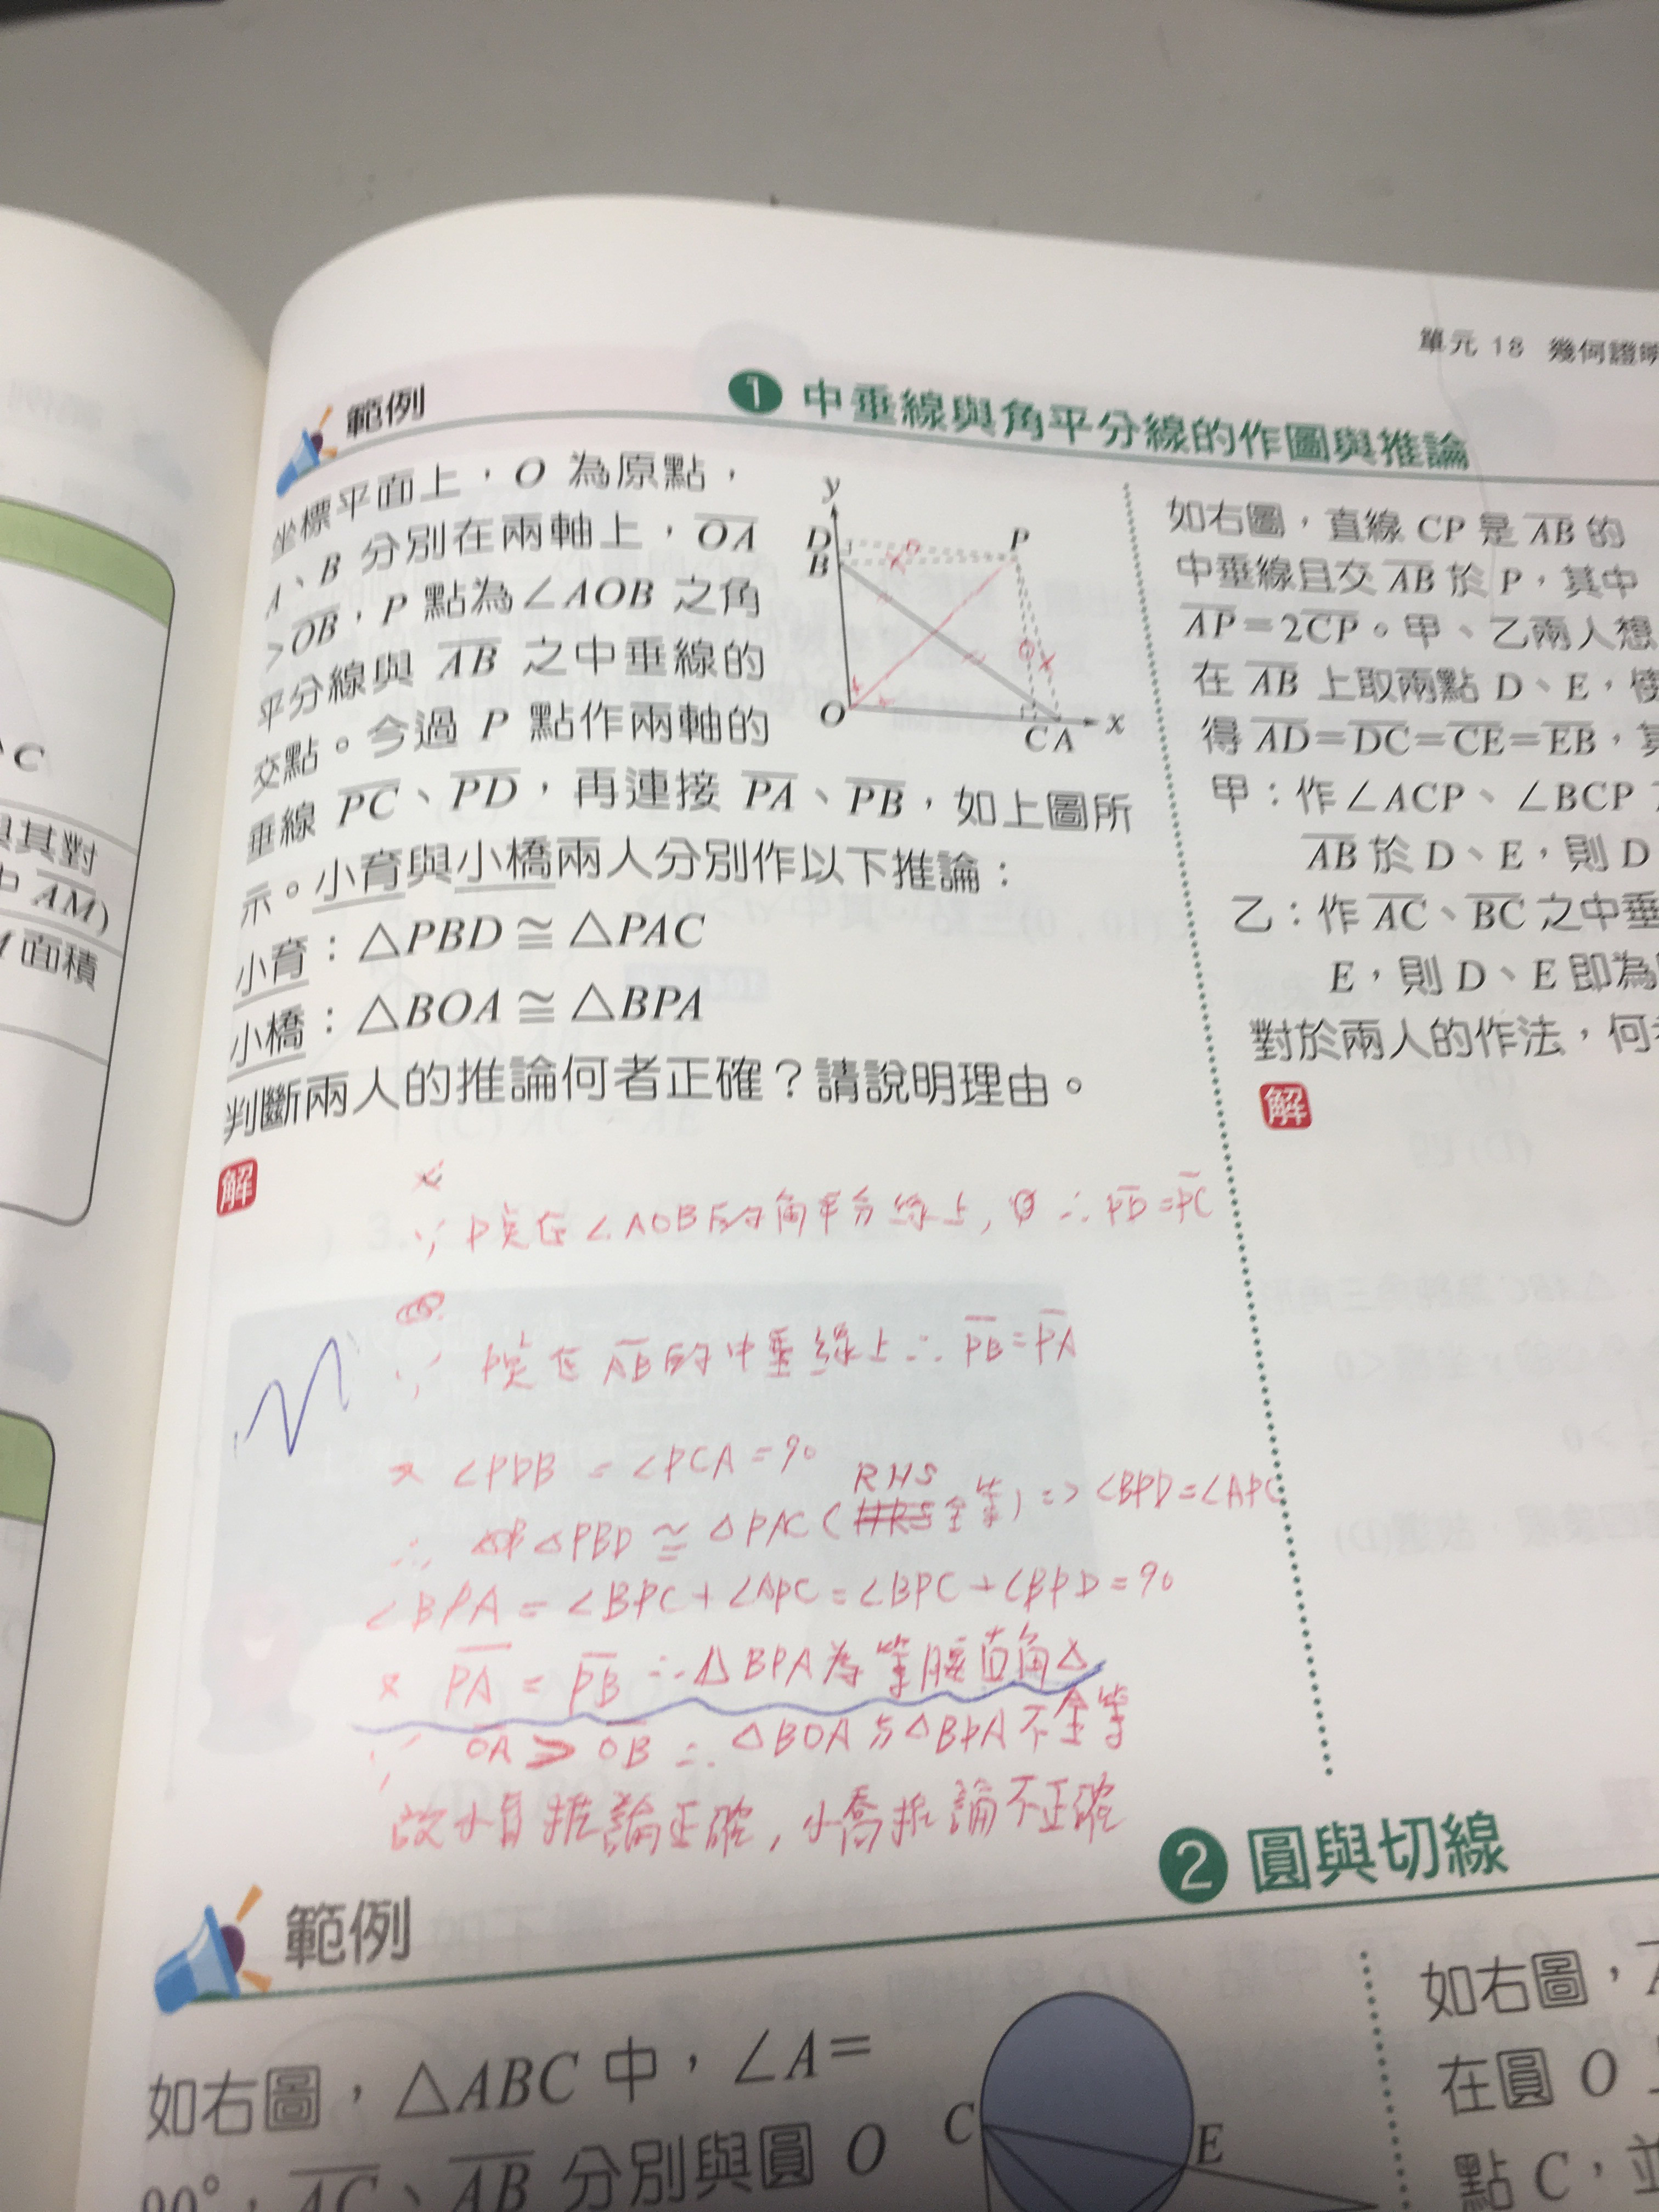 單元 18 幾何證明
範例
1 中垂線與角平分線的作圖與推論
坐標平面上，O 為原點，
A、B 分別在兩軸上，OA
>OB，P 點為∠AOB 之角
平分線與 AB 之中垂線的
交點。今過 P 點作兩軸的
垂線 PC、PD，再連接 PA、PB，如上圖所
示。小育與小橋兩人分別作以下推論：
小育：△PBD≅△PAC
小橋：△BOA≅△BPA
判斷兩人的推論何者正確？請說明理由。
y
D
B
P
O
C A
x
解
∵ P点在∠AOB的角平分線上, ∴ PD=PC
∵ P点在AB的中垂線上∴ PB=PA
又 ∠PDB = ∠PCA = 90
RHS
∴ △PBD ≅ △PAC (全等) => ∠BPD=∠APC
∠BPA = ∠BPC + ∠APC = ∠BPC + ∠BPD = 90
又 PA = PB ∴ △BPA為等腰直角△
∵ OA > OB ∴ △BOA与△BPA不全等
故小育推論正確, 小喬推論不正確
如右圖，直線 CP 是 AB 的
中垂線且交 AB 於 P，其中
AP=2CP。甲、乙兩人想
在 AB 上取兩點 D、E，使
得 AD=DC=CE=EB，其
甲：作∠ACP、∠BCP
AB 於 D、E，則 D
乙：作 AC、BC 之中垂
E，則 D、E 即為
對於兩人的作法，何
解
C
與其對
中 AM)
面積
範例
2 圓與切線
如右圖，△ABC 中，∠A=
90°，AC、AB 分別與圓 O
C
E
如右圖，
在圓 O
點 C，並